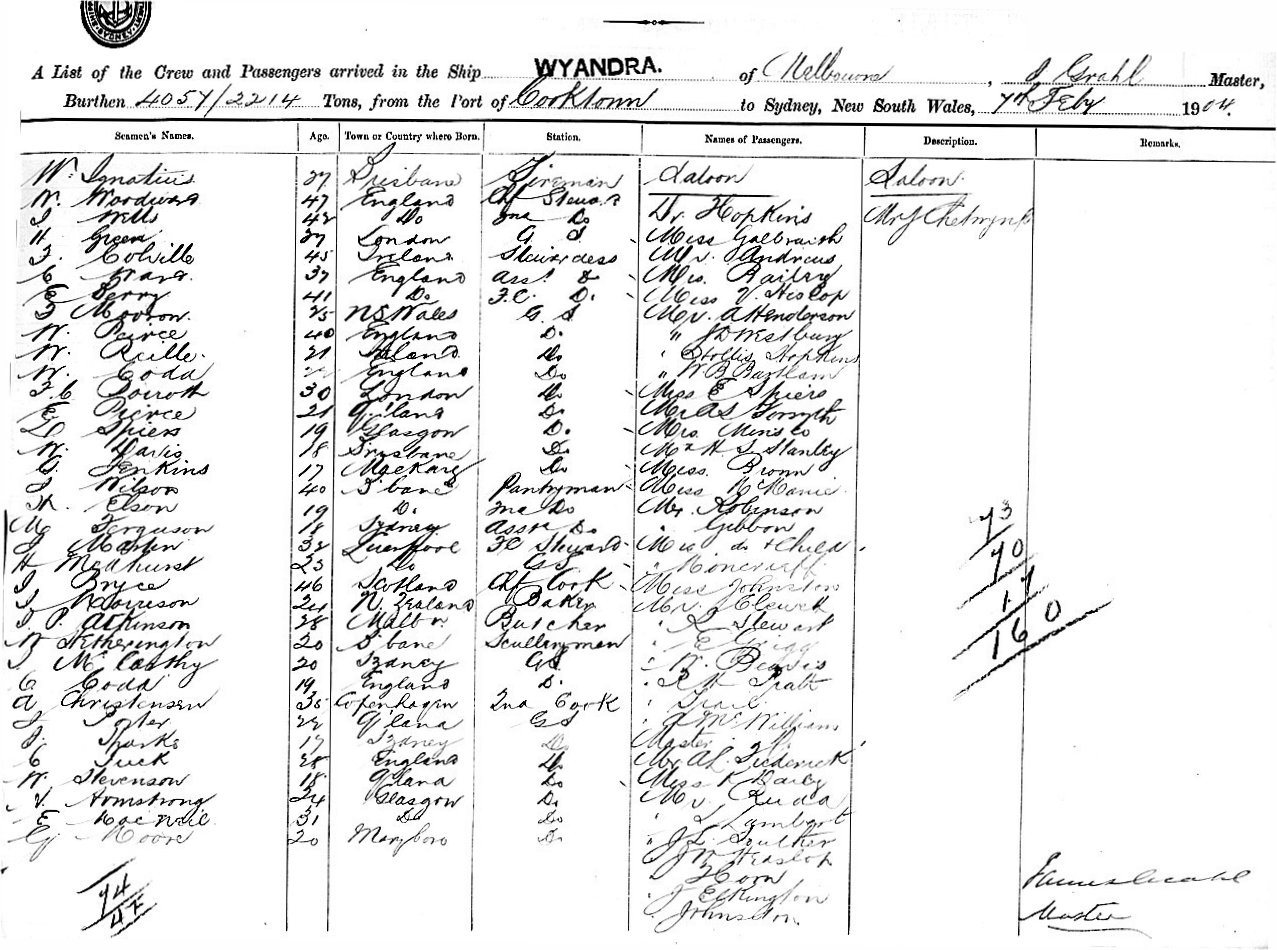 SYDNEY
A List of the Crew and Passengers arrived in the Ship WYANDRA. of Melbourne, J Grahl Master,
Burthen 4057/2214 Tons, from the Port of Cooktown to Sydney, New South Wales, 7th Feby 1904.
Seamen's Names. Age. Town or Country where Born. Station. Names of Passengers. Description. Remarks.
W. Ignatius 27 Brisbane Fireman Saloon Saloon
W. Woodward 47 England Chf Steward
J Wells 42 Do 2nd Do Dr. Hopkins Mr J Chetwynd
H. Green 27 London G S Miss Galbraith
Colville 45 Ireland Stewardess Mr. Andrews
C Ward 37 England Asst Do Mrs. Bailey
E Berry 41 Do F.C. Do. Miss V. Hislop
Morson 25 N S Wales G S Mr. A Henderson
W. Peirce 40 England Do " J D Westbury
W. 21 Ireland Do " Hollis Hopkins
W. Coda England Do " W B Bartlam
F.C. 30 London Do Miss E Spiers
E. Peirce 21 Q'land Do Mr A S Forsyth
D Spiers 19 Glasgow Do Mrs.
W. Davis 18 Brisbane Do Mr H J Stanley
G. Jenkins 17 Mackay Do Miss. Bronn
J Wilson 40 B'bane Pantryman Miss McManie
Th. Elson 19 Do 2nd Do Mr. Robinson
Ferguson 18 Sydney Asst Do " Gibbon 73
J Martin 32 Liverpool FC Steward Mrs do & Child 70
H Medhurst 23 Do GS " Moncrieff
J Bryce 46 Scotland Chf Cook Miss Johnston 17
J Harrison 24 N. Zealand Baker Mr. J Elswick 160
J. P. Atkinson 28 Melbn Butcher " R Stewart
W Hetherington 20 B'bane Scullaryman " E Grigg
J McCarthy 20 Sydney GS " W. Beavis
C Coda 19 England Do " R H Pratt
A Christensen 35 Copenhagen 2nd Cook " Trail
J 22 Q'land GS " McWilliams
J. Sharke 17 Sydney Do Master
C Tuck 28 England Do Mr A L Frederick
W. Stevenson 18 Q'land Do Miss K Bailey
V. Armstrong 24 Glasgow Do Mr. Rudd
E MacNeil 31 Do Do " L Lambert
G Moore 20 Maryboro Do " J L Soutter
" J W Heaslop
" Horn James Grahl
74 " J Elkington Master
47 " Johnston